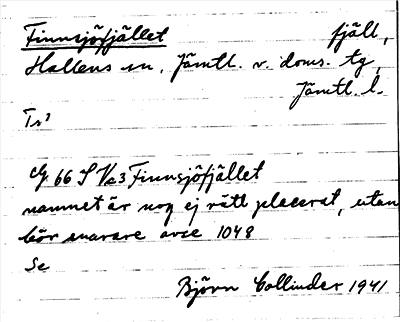 Finnsjöfjället fjäll,
Hallens sn, Jämtl. v. doms. tg,
Jämtl. l.
Ts?
Cg 66 S Va3 Finnsjöfjället
namnet är nog ej rätt placerat, utan
bör snarare avse 1048
Se
Björn Collinder 1941